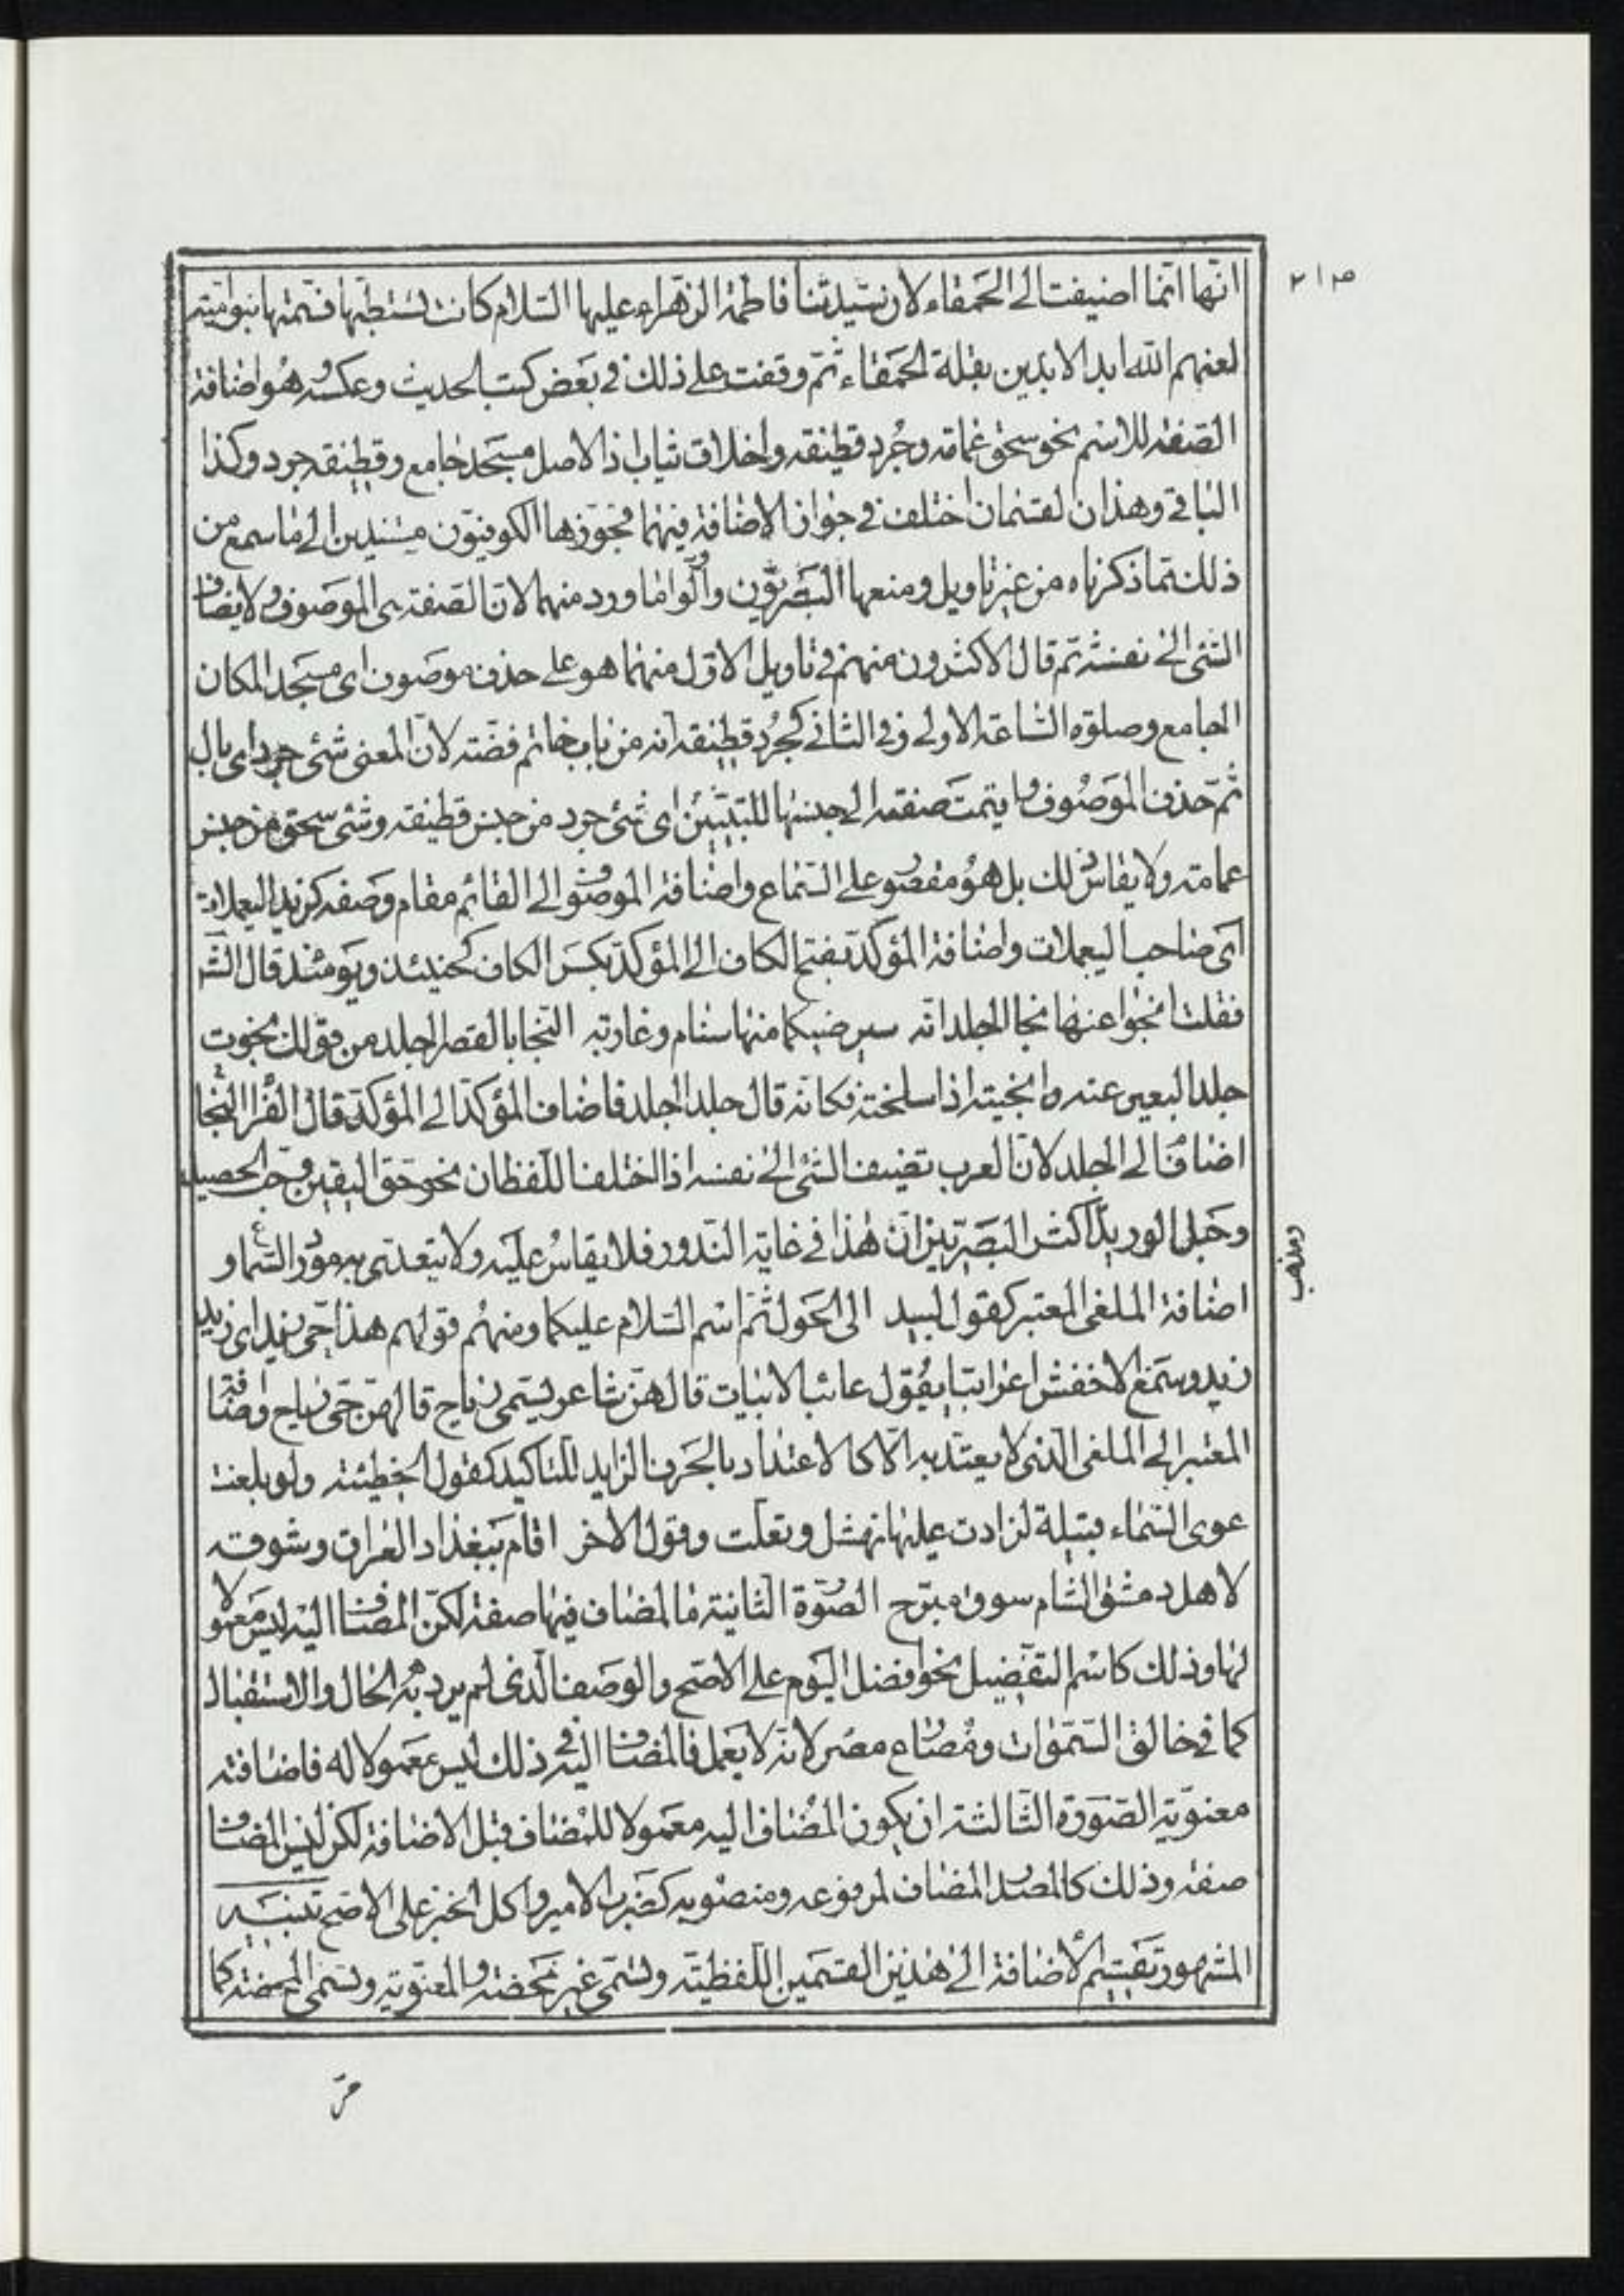 ٢١٥
انّها انّما اضيفت الى الحَمقاء لان سيّدتنا فاطمة الزّهراء عليها السّلام كانت تستطبّها فسمّتها بنو اميّة
لعنهم الله ابد الابدين بقلة الحَمقاء ثمّ وقفت على ذلك في بَعض كتب الحديث وعكسه وهُو اضافة
الصّفة للاسم نحو سحق عمامة وجُرد قطيفة واخلاق ثياب اذ الاصل مسجد جامع وقطيفة جرد وكذا
الباقي وهذان القسمان اختلف في جواز الاضافة فيهما فجوّزها الكوفيّون مستندين الى ما سمع من
ذلك ممّا ذكرناه من غير تاويل ومنعها البَصريّون واوّلوا ما ورد منهما لانّ الصّفة هى الموصوف ولا يضاف
الشّئ الى نفسه ثم قال الاكثرون منهم في تاويل الاوّل منهما هو على حذف موصوف اى مسجد المكان
الجامع وصلوة السّاعة الاولى وفي الثاني كجُرد قطيفة انه من باب خاتم فضّة لانّ المعنى شئ جرد اى بال
ثمّ حذف المَوصُوف واضيفت صفته الى جنسها للتبيين اى شئ جرد من جنس قطيفة وشئ سحق من جنس
عمامة ولا يقاس ذلك بل هو مقصور على السّماع واضافة الموصوف الى القائم مقام وَصفه كزيد اليعملات
اَى صاحب اليعملات واضافة المؤكّد بفتح الكاف الى المؤكّد بكسر الكاف كحينئذ ويَومئذ قال الشر
فقلت انجوا عنها نجا الجلد انّه سيرضيكما منها سنام وغاربه النّجا بالقصر الجلد من قولك نجوت
جلد البعير عنه وانجيته اذا سلخته فكانّه قال جلد الجلد فاضاف المؤكّد الى المؤكّد قال الفرّا النّجا
اضافة الى الجلد لانّ العرب تضيف الشّئ الى نفسه اذا اختلف اللّفظان نحو حقّ اليقين وحَبّ الحصيد
وحَبل الوريد اكثر البَصريّين انّ هٰذا في غاية النّدور فلا يقاسُ عليَه ولا يتعدّى به مورد السّماع و
ومذهب
اضافة الملغى الى المعتبر كقول لبيد الى الحَول ثمّ اسم السّلام عليكما ومنهُم قولهم هذا حىّ زيد اى زيد
زيد وسَمع الاخفش اعرابيّا يقُول عائبا لابيات قالهنّ شاعر يسمّى رباح قالهنّ حىّ رباح واضافة
المعتبر الى الملغى الّذى لا يعتدّ به الّا كالاعتداد بالحَرف الزايد للتاكيد كقول الحطيئة ولو بلغت
عوى السّماء قبيلة لزادت عليها نهشل وتعلّت وقول الاخر اقام ببغداد العراق وشوقه
لاهل دمشق الشام سوق مبرّح الصّورة الثانية ما المضاف فيها صفة لكنّ المضاف اليه ليس معمولا
لها وذلك كاسم التفضيل نحو افضل اليوم على الاصحّ والوصف الّذى لم يرد به الحال والاستقبال
كما في خالق السّمٰوات ومُصارع مصر لانّه لا يعمل فالمضاف اليه في ذلك ليس معمولا له فاضافته
معنويّة الصّورة الثالثة ان يكون المضاف اليه معمولا للمضاف قبل الاضافة لكن ليس المضاف
صفة وذلك كالمصدر المضاف لمرفوعه ومنصوبه كضَرب الامير واكل الخبز على الاصحّ تنبيه
المشهور تقسيم الاضافة الى هٰذين القسمين اللّفظيّة وتسمّى غير مَحضة والمعنويّة وتسمّى المحضة كما
مرّ